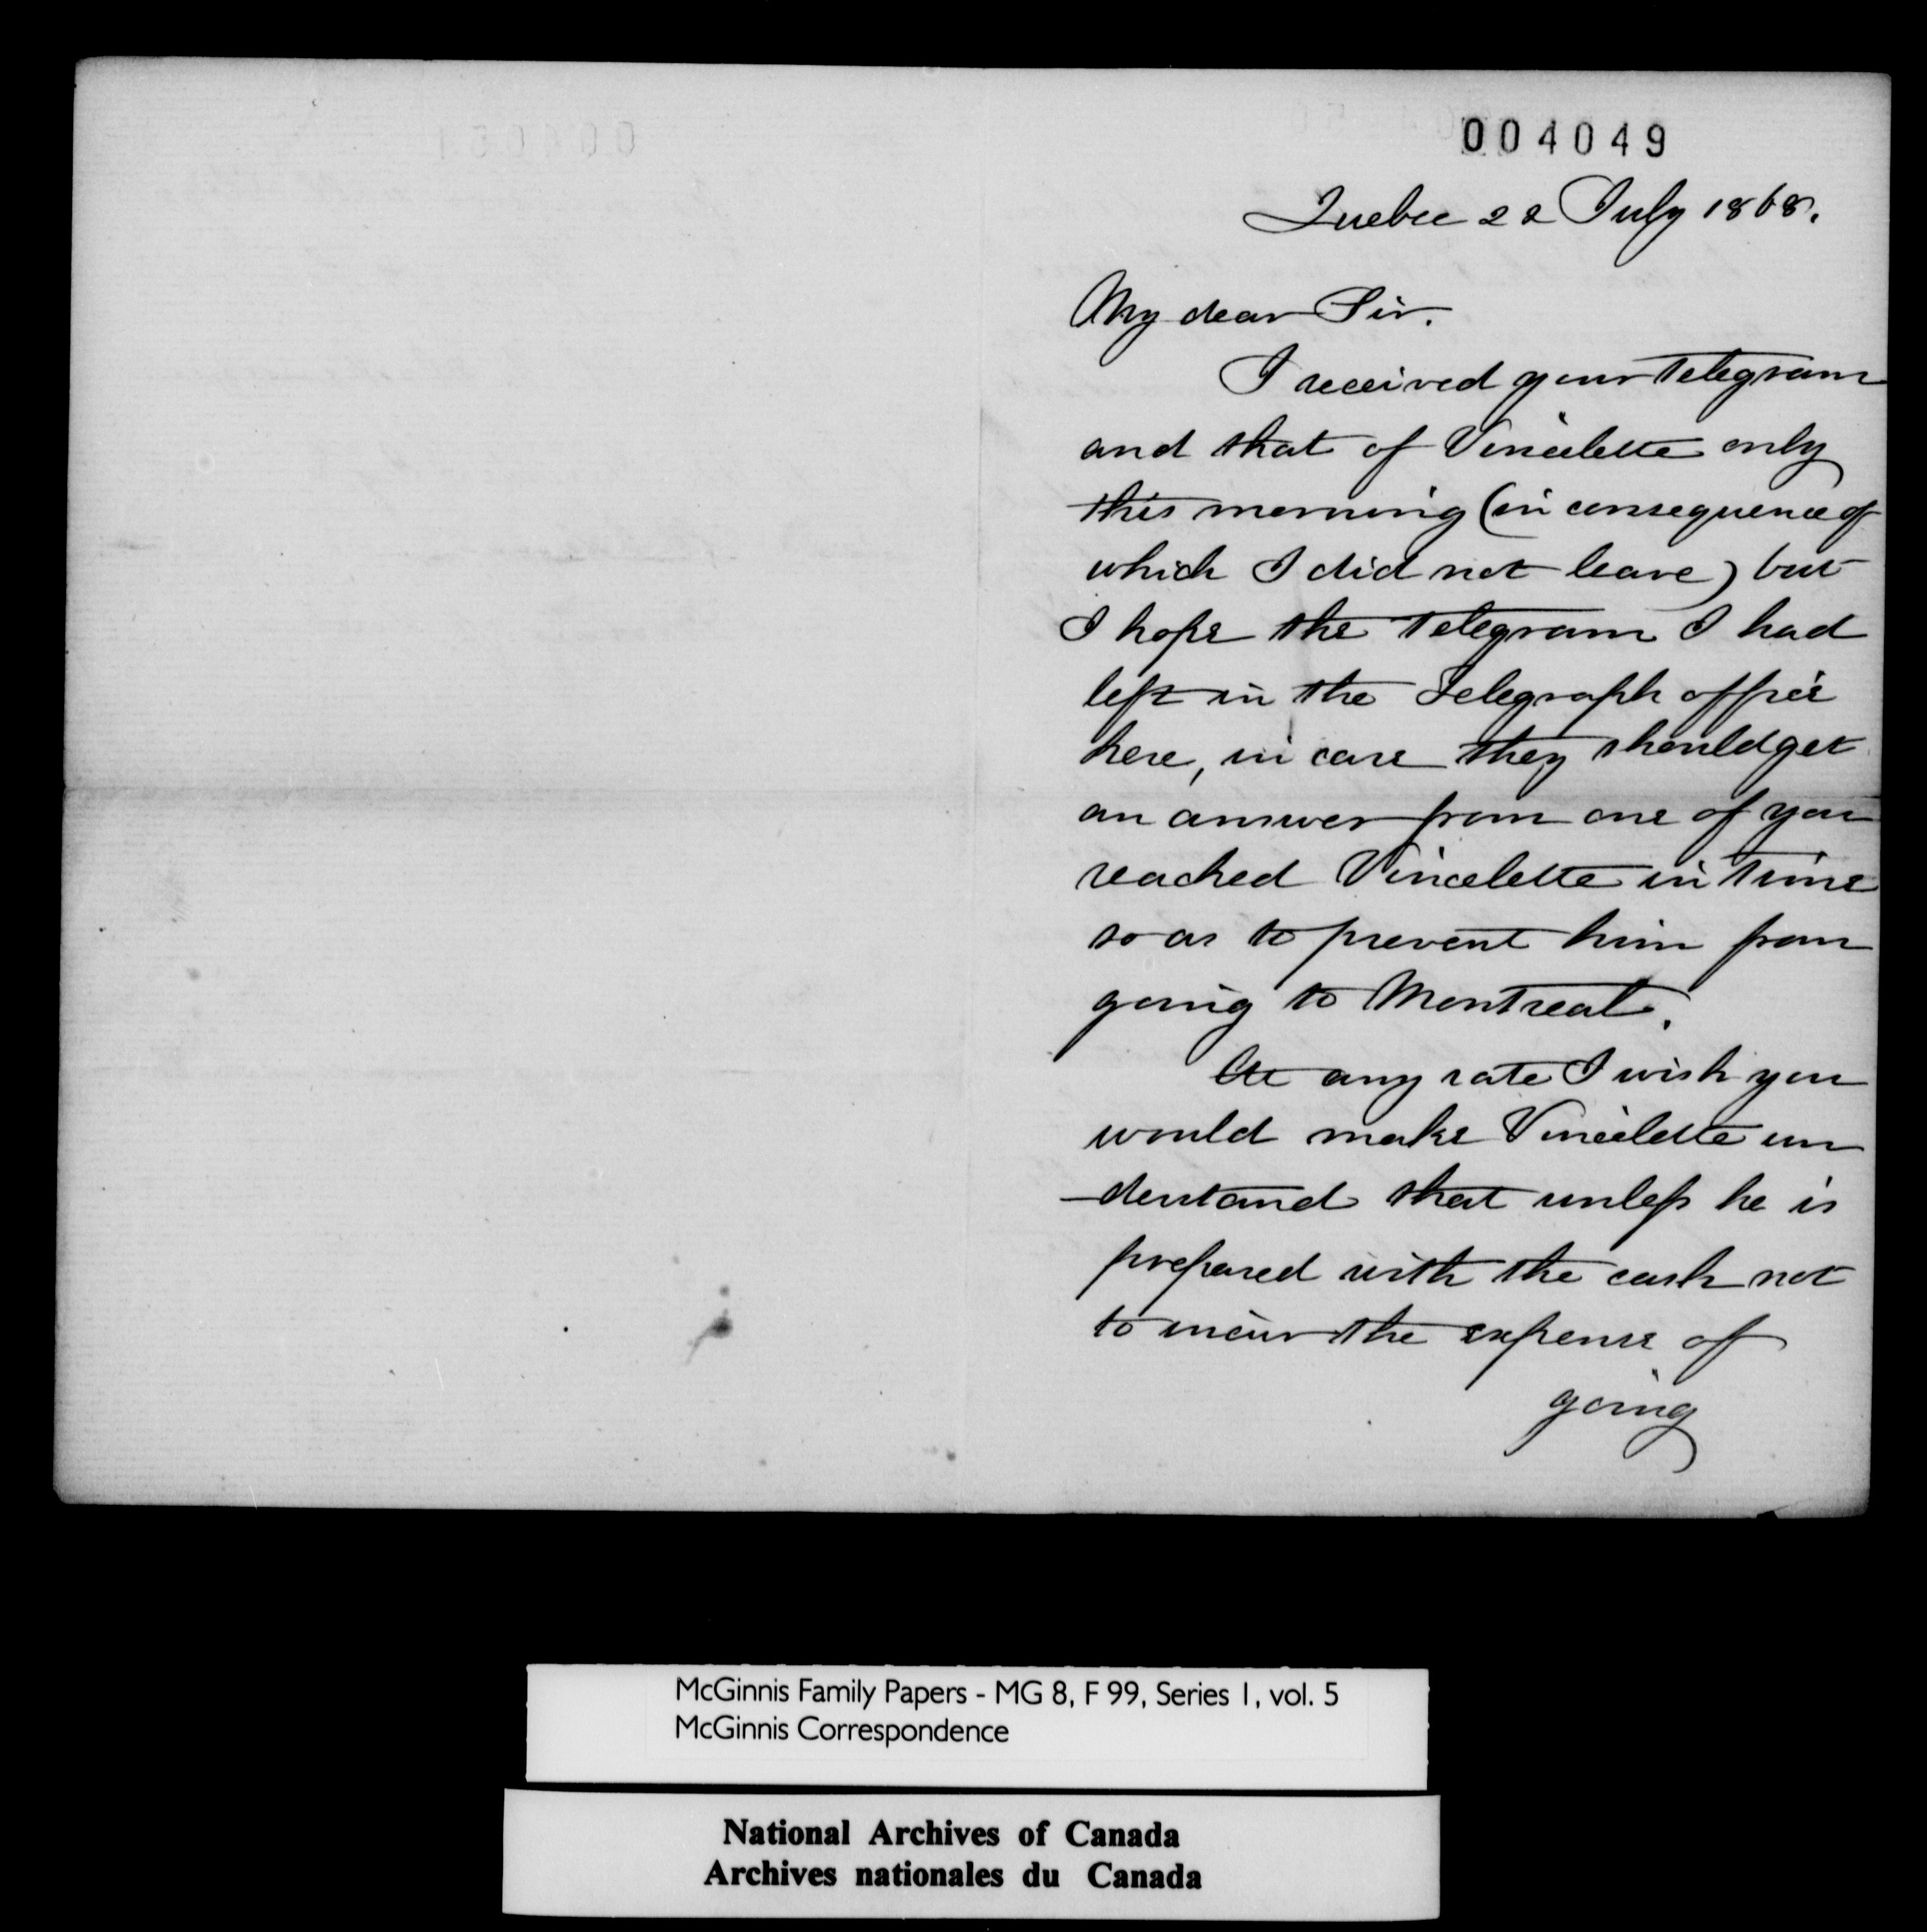 004049
Quebec 22 July 1868.
My dear Sir.
I received your Telegram
and that of Vincelette only
this morning (in consequence of
which I did not leave) but
I hope the Telegram I had
left in the Telegraph office
here, in case they should get
an answer from one of you
reached Vincelette in time
so as to prevent him from
going to Montreal.
At any rate I wish you
would make Vincelette un
-derstand that unless he is
prepared with the cash not
to incur the expense of
going
McGinnis Family Papers - MG 8, F 99, Series 1, vol. 5
McGinnis Correspondence
National Archives of Canada
Archives nationales du Canada